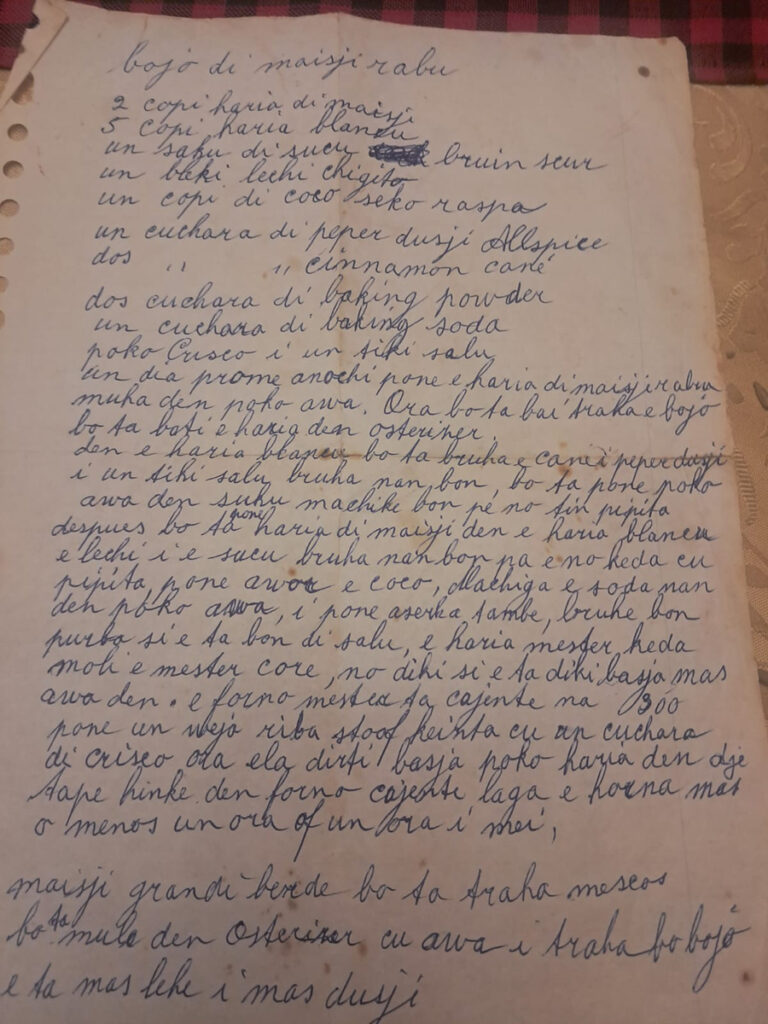 bojó di maisji rabu
2 copi haria di maisji
5 copi haria blancu
un saku di sucu bruin scur
un baki lechi chigito
un copi di coco seko raspa
un cuchara di peper dusji Allspice
dos " " cinnamon cané
dos cuchara di baking powder
un cuchara di baking soda
poko Crisco i un tiki salu
un dia prome anochi pone e haria di maisji rabu
muha den poko awa. Ora bo ta bai traha e bojó
bo ta bati e haria den osterizer,
den e haria blancu bo ta bruha e cane i peper dusji
i un tiki salu bruha nan bon, bo ta pone poko
awa den suku machike bon pé no tin pipita
despues bo ta pone haria di maisji den e haria blancu
e lechi i e sucu bruha nan bon pa e no keda cu
pipita, pone awor e coco, Machiga e soda nan
den póko awa, i pone aserka tambe, bruhe bon
purba si e ta bon di salu, e haria mester keda
moli e mester core, no diki si e ta diki basja mas
awa den. e forno mester ta cajente na 300
pone un wejo riba stoof keinta cu un cuchara
di crisco ora ela dirti basja poko haria den dje
tape hinke den forno cajente laga e horna mas
o menos un ora of un ora i mei,
maisji grandi berde bo ta traha mescos
bo ta mule den Osterizer cu awa i traha bo bojó
e ta mas lehe i mas dusji